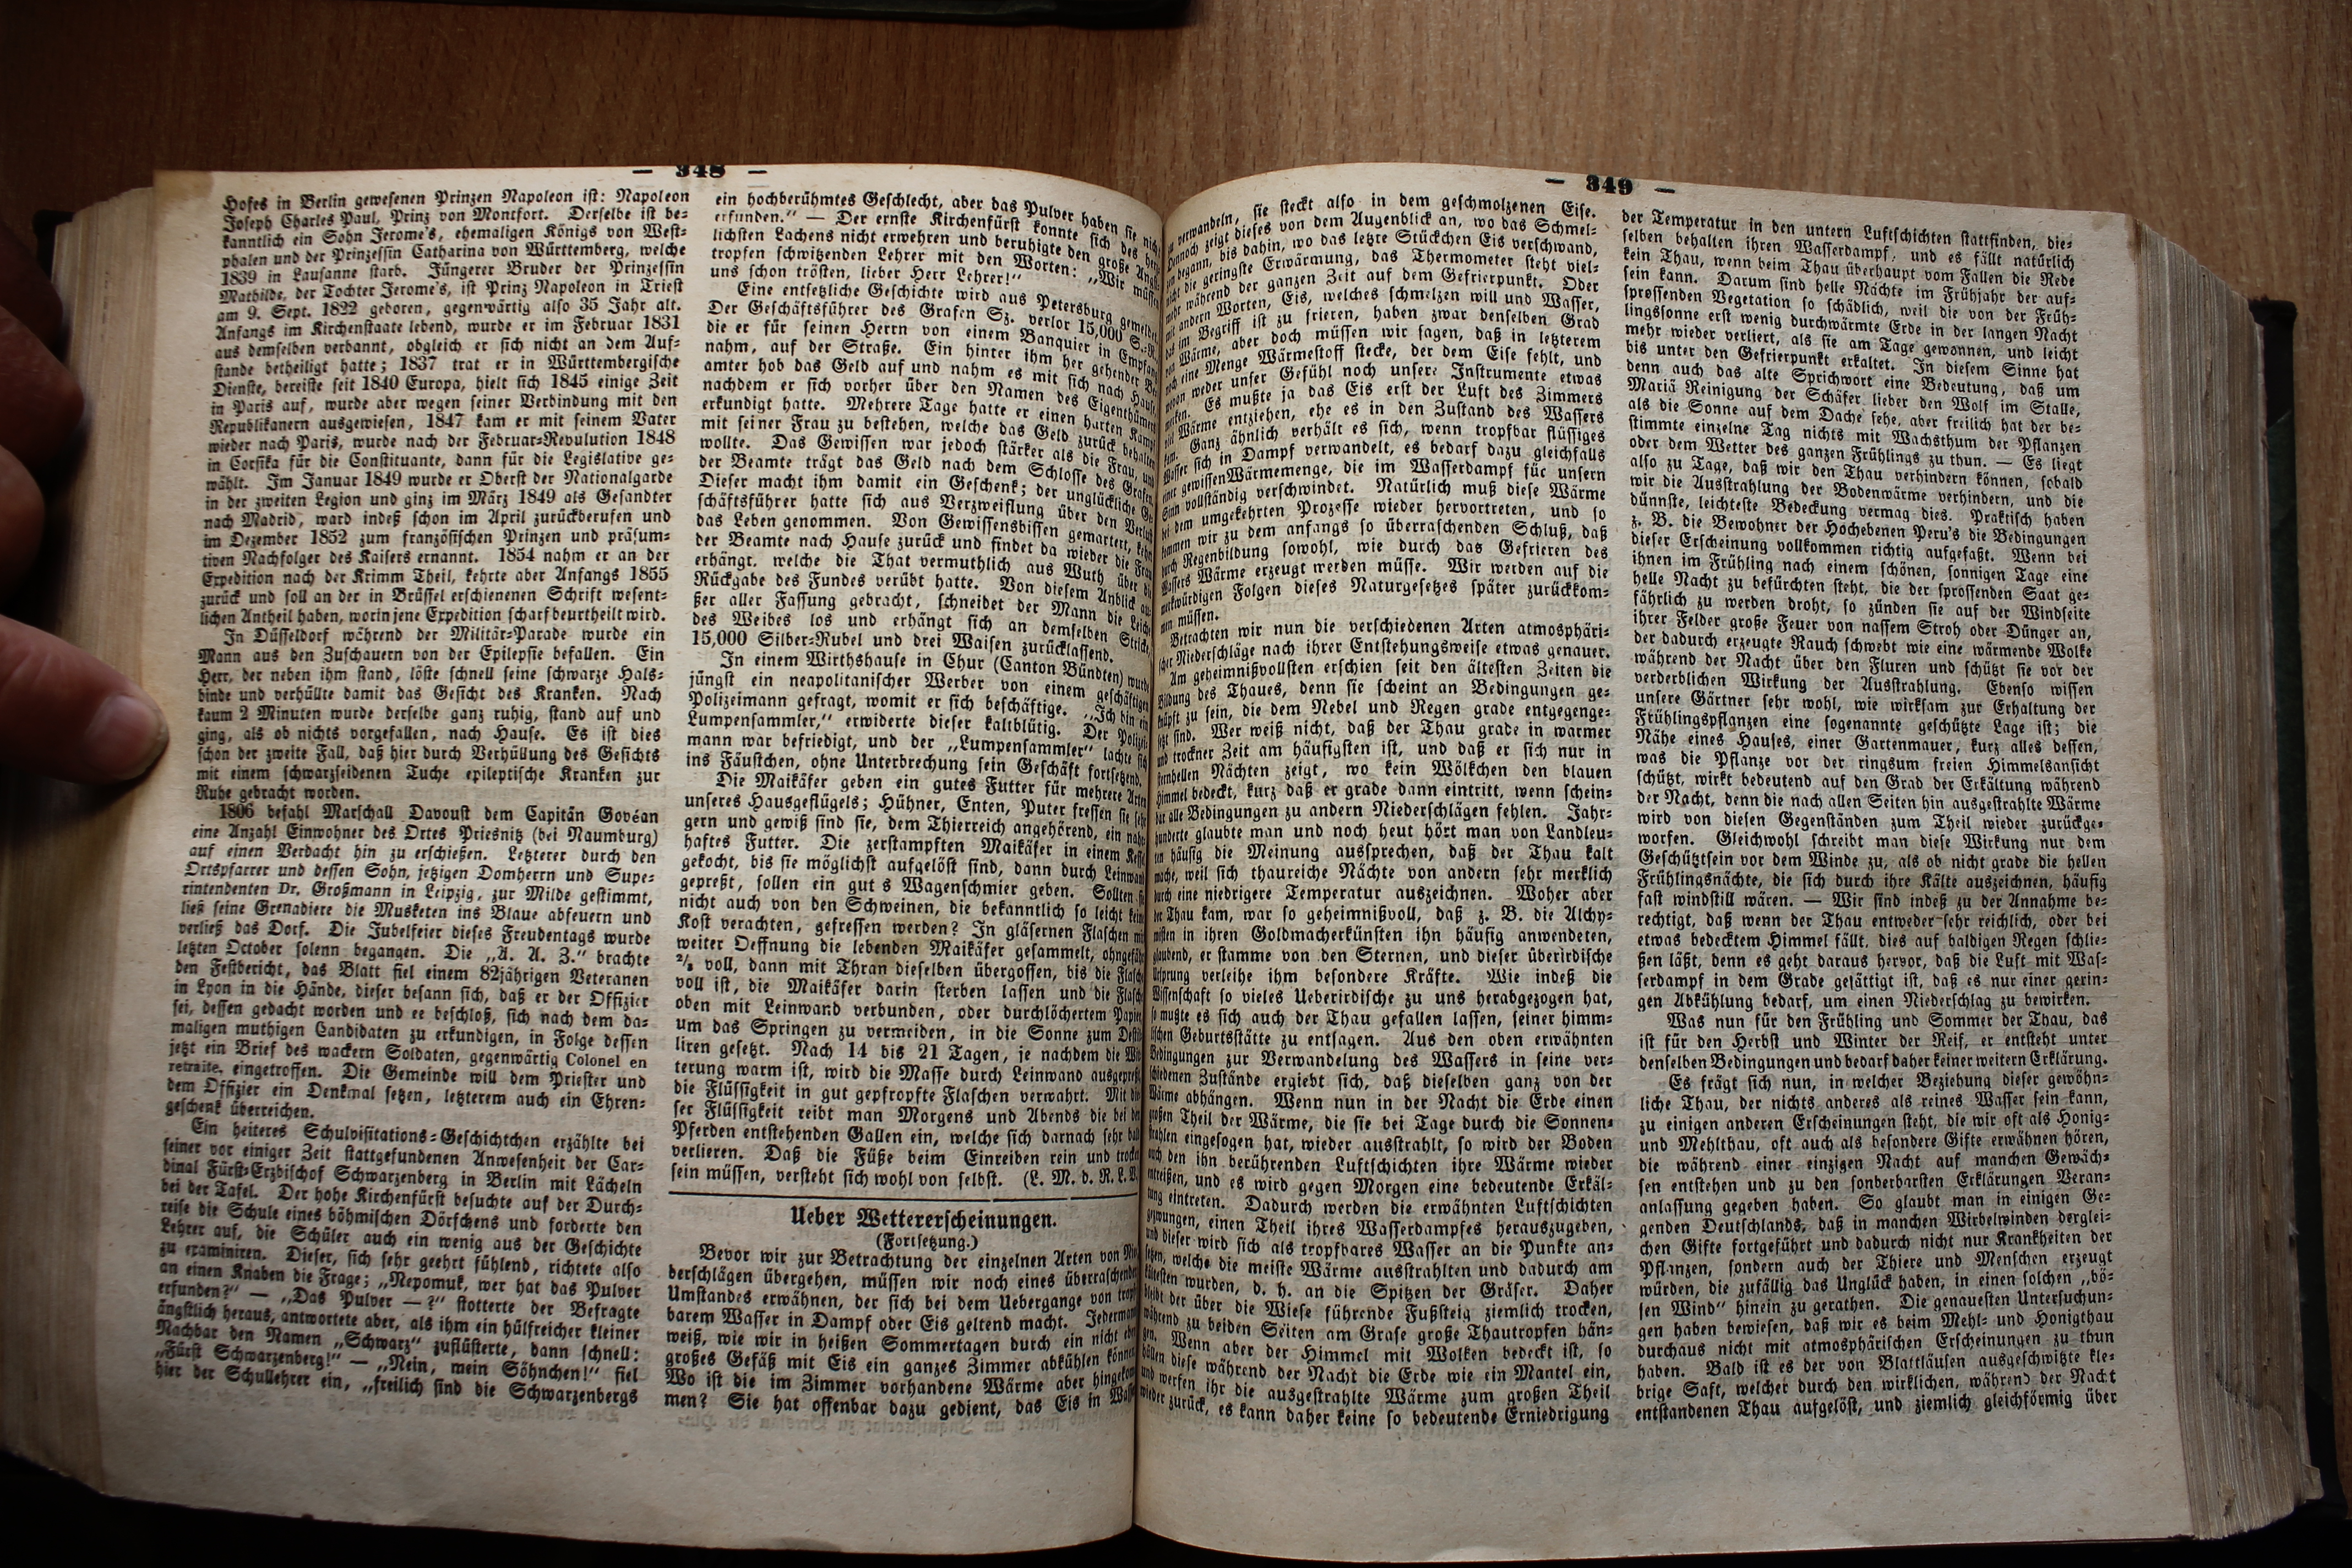 — 348 —
Hofes in Berlin gewesenen Prinzen Napoleon ist: Napoleon
Joseph Charles Paul, Prinz von Montfort. Derselbe ist be-
kanntlich ein Sohn Jerome's, ehemaligen Königs von West-
phalen und der Prinzessin Catharina von Württemberg, welche
1839 in Lausanne starb. Jüngerer Bruder der Prinzessin
Mathilde, der Tochter Jerome's, ist Prinz Napoleon in Triest
am 9. Sept. 1822 geboren, gegenwärtig also 35 Jahr alt.
Anfangs im Kirchenstaate lebend, wurde er im Februar 1831
aus demselben verbannt, obgleich er sich nicht an dem Auf-
stande betheiligt hatte; 1837 trat er in Württembergische
Dienste, bereiste seit 1840 Europa, hielt sich 1845 einige Zeit
in Paris auf, wurde aber wegen seiner Verbindung mit den
Republikanern ausgewiesen, 1847 kam er mit seinem Vater
wieder nach Paris, wurde nach der Februar-Revulution 1848
in Corsika für die Constituante, dann für die Legislative ge-
wählt. Im Januar 1849 wurde er Oberst der Nationalgarde
in der zweiten Legion und ging im März 1849 als Gesandter
nach Madrid, ward indeß schon im April zurückberufen und
im Dezember 1852 zum französischen Prinzen und präsum-
tiven Nachfolger des Kaisers ernannt. 1854 nahm er an der
Expedition nach der Krimm Theil, kehrte aber Anfangs 1855
zurück und soll an der in Brüssel erschienenen Schrift wesent-
lichen Antheil haben, worin jene Expedition scharf beurtheilt wird.
In Düsseldorf während der Militär-Parade wurde ein
Mann aus den Zuschauern von der Epilepsie befallen. Ein
Herr, der neben ihm stand, löste schnell seine schwarze Hals-
binde und verhüllte damit das Gesicht des Kranken. Nach
kaum 2 Minuten wurde derselbe ganz ruhig, stand auf und
ging, als ob nichts vorgefallen, nach Hause. Es ist dies
schon der zweite Fall, daß hier durch Verhüllung des Gesichts
mit einem schwarzseidenen Tuche epileptische Kranken zur
Ruhe gebracht worden.
1806 befahl Marschall Davoust dem Capitän Govéan
eine Anzahl Einwohner des Ortes Priesnitz (bei Naumburg)
auf einen Verdacht hin zu erschießen. Letzterer durch den
Ortspfarrer und dessen Sohn, jetzigen Domherrn und Supe-
rintendenten Dr. Großmann in Leipzig, zur Milde gestimmt,
ließ seine Grenadiere die Musketen ins Blaue abfeuern und
verließ das Dorf. Die Jubelfeier dieses Freudentags wurde
letzten October solenn begangen. Die „A. A. Z." brachte
den Festbericht, das Blatt fiel einem 82jährigen Veteranen
in Lyon in die Hände, dieser besann sich, daß er der Offizier
sei, dessen gedacht worden und ee beschloß, sich nach dem da-
maligen muthigen Candidaten zu erkundigen, in Folge dessen
jetzt ein Brief des wackern Soldaten, gegenwärtig Colonel en
retraite, eingetroffen. Die Gemeinde will dem Priester und
dem Offizier ein Denkmal setzen, letzterem auch ein Ehren-
geschenk überreichen.
Ein heiteres Schulvisitations-Geschichtchen erzählte bei
seiner vor einiger Zeit stattgefundenen Anwesenheit der Car-
dinal Fürst-Erzbischof Schwarzenberg in Berlin mit Lächeln
bei der Tafel. Der hohe Kirchenfürst besuchte auf der Durch-
reise die Schule eines böhmischen Dörfchens und forderte den
Lehrer auf, die Schüler auch ein wenig aus der Geschichte
zu examiniren. Dieser, sich sehr geehrt fühlend, richtete also
an einen Knaben die Frage; „Nepomuk, wer hat das Pulver
erfunden?" — „Das Pulver —?" stotterte der Befragte
ängstlich heraus, antwortete aber, als ihm ein hülfreicher kleiner
Nachbar den Namen „Schwarz" zuflüsterte, dann schnell:
„Fürst Schwarzenberg!" — „Nein, mein Söhnchen!" fiel
hier der Schullehrer ein, „freilich sind die Schwarzenbergs
ein hochberühmtes Geschlecht, aber das Pulver haben sie
erfunden." — Der ernste Kirchenfürst konnte sich des
lichsten Lachens nicht erwehren und beruhigte den große
tropfen schwitzenden Lehrer mit den Worten: „Wir müssen
uns schon trösten, lieber Herr Lehrer!"
Eine entsetzliche Geschichte wird aus Petersburg gemeldet
Der Geschäftsführer des Grafen Sz. verlor 15,000
die er für seinen Herrn von einem Banquier in Empfang
nahm, auf der Straße. Ein hinter ihm her gehender
amter hob das Geld auf und nahm es mit sich nach Hause
nachdem er sich vorher über den Namen des Eigenthümers
erkundigt hatte. Mehrere Tage hatte er einen harten Kampf
mit seiner Frau zu bestehen, welche das Geld zurück behalten
wollte. Das Gewissen war jedoch stärker als die Frau, und
der Beamte trägt das Geld nach dem Schlosse des Grafen
Dieser macht ihm damit ein Geschenk; der unglückliche
schäftsführer hatte sich aus Verzweiflung über den Verlust
das Leben genommen. Von Gewissensbissen gemartert, kehrt
der Beamte nach Hause zurück und findet da wieder die Frau
erhängt, welche die That vermuthlich aus Wuth über
Rückgabe des Fundes verübt hatte. Von diesem Anblick
ßer aller Fassung gebracht, schneidet der Mann die Leiche
des Weibes los und erhängt sich an demselben Stricke,
15,000 Silber-Rubel und drei Waisen zurücklassend.
In einem Wirthshause in Chur (Canton Bündten) wurde
jüngst ein neapolitanischer Werber von einem geschäftigen
Polizeimann gefragt, womit er sich beschäftige. „Ich bin ein
Lumpensammler," erwiderte dieser kaltblütig. Der
mann war befriedigt, und der „Lumpensammler" lachte sich
ins Fäustchen, ohne Unterbrechung sein Geschäft fortsetzend.
Die Maikäfer geben ein gutes Futter für mehrere Arten
unseres Hausgeflügels; Hühner, Enten, Puter fressen sie sehr
gern und gewiß sind sie, dem Thierreich angehörend, ein
haftes Futter. Die zerstampften Maikäfer in einem Kessel
gekocht, bis sie möglichst aufgelöst sind, dann durch Leinwand
gepreßt, sollen ein gut s Wagenschmier geben. Sollten
nicht auch von den Schweinen, die bekanntlich so leicht keine
Kost verachten, gefressen werden? In gläsernen Flaschen mit
weiter Oeffnung die lebenden Maikäfer gesammelt, ohngefähr
⅔ voll, dann mit Thran dieselben übergossen, bis die Flasche
voll ist, die Maikäfer darin sterben lassen und die Flasche
oben mit Leinwand verbunden, oder durchlöchertem Papier
um das Springen zu vermeiden, in die Sonne zum Destil-
liren gesetzt. Nach 14 bis 21 Tagen, je nachdem die Wit-
terung warm ist, wird die Masse durch Leinwand ausgepreßt
die Flüssigkeit in gut gepfropfte Flaschen verwahrt. Mit
ser Flüssigkeit reibt man Morgens und Abends die bei den
Pferden entstehenden Gallen ein, welche sich darnach sehr bald
verlieren. Daß die Füße beim Einreiben rein und trocken
sein müssen, versteht sich wohl von selbst. (L. M. d. K. L.
Ueber Wettererscheinungen.
(Fortsetzung.)
Bevor wir zur Betrachtung der einzelnen Arten von Nie-
derschlägen übergehen, müssen wir noch eines überraschenden
Umstandes erwähnen, der sich bei dem Uebergange von tropf-
barem Wasser in Dampf oder Eis geltend macht. Jedermann
weiß, wie wir in heißen Sommertagen durch ein nicht eben
großes Gefäß mit Eis ein ganzes Zimmer abkühlen können.
Wo ist die im Zimmer vorhandene Wärme aber hingekom-
men? Sie hat offenbar dazu gedient, das Eis in Wasser
— 349 —
verwandeln, sie steckt also in dem geschmolzenen Eise.
Dennoch zeigt dieses von dem Augenblick an, wo das Schmel-
begann, bis dahin, wo das letzte Stückchen Eis verschwand,
nicht die geringste Erwärmung, das Thermometer steht viel-
mehr während der ganzen Zeit auf dem Gefrierpunkt. Oder
mit andern Worten, Eis, welches schmelzen will und Wasser,
das im Begriff ist zu frieren, haben zwar denselben Grad
Wärme, aber doch müssen wir sagen, daß in letzterem
noch eine Menge Wärmestoff stecke, der dem Eise fehlt, und
wovon weder unser Gefühl noch unsere Instrumente etwas
merken. Es mußte ja das Eis erst der Luft des Zimmers
viel Wärme entziehen, ehe es in den Zustand des Wassers
kam. Ganz ähnlich verhält es sich, wenn tropfbar flüssiges
Wasser sich in Dampf verwandelt, es bedarf dazu gleichfalls
einer gewissen Wärmemenge, die im Wasserdampf für unsern
Sinn vollständig verschwindet. Natürlich muß diese Wärme
bei dem umgekehrten Prozesse wieder hervortreten, und so
kommen wir zu dem anfangs so überraschenden Schluß, daß
durch Regenbildung sowohl, wie durch das Gefrieren des
Wassers Wärme erzeugt werden müsse. Wir werden auf die
merkwürdigen Folgen dieses Naturgesetzes später zurückkom-
men müssen.
Betrachten wir nun die verschiedenen Arten atmosphäri-
scher Niederschläge nach ihrer Entstehungsweise etwas genauer.
Am geheimnißvollsten erschien seit den ältesten Zeiten die
Bildung des Thaues, denn sie scheint an Bedingungen ge-
knüpft zu sein, die dem Nebel und Regen grade entgegenge-
setzt sind. Wer weiß nicht, daß der Thau grade in warmer
und trockner Zeit am häufigsten ist, und daß er sich nur in
sternhellen Nächten zeigt, wo kein Wölkchen den blauen
Himmel bedeckt, kurz daß er grade dann eintritt, wenn schein-
bar alle Bedingungen zu andern Niederschlägen fehlen. Jahr-
hunderte glaubte man und noch heut hört man von Landleu-
ten häufig die Meinung aussprechen, daß der Thau kalt
mache, weil sich thaureiche Nächte von andern sehr merklich
durch eine niedrigere Temperatur auszeichnen. Woher aber
der Thau kam, war so geheimnißvoll, daß z. B. die Alchy-
misten in ihren Goldmacherkünsten ihn häufig anwendeten,
glaubend, er stamme von den Sternen, und dieser überirdische
Ursprung verleihe ihm besondere Kräfte. Wie indeß die
Wissenschaft so vieles Ueberirdische zu uns herabgezogen hat,
so mußte es sich auch der Thau gefallen lassen, seiner himm-
lischen Geburtsstätte zu entsagen. Aus den oben erwähnten
Bedingungen zur Verwandelung des Wassers in seine ver-
schiedenen Zustände ergiebt sich, daß dieselben ganz von der
Wärme abhängen. Wenn nun in der Nacht die Erde einen
großen Theil der Wärme, die sie bei Tage durch die Sonnen-
strahlen eingesogen hat, wieder ausstrahlt, so wird der Boden
auch den ihn berührenden Luftschichten ihre Wärme wieder
entreißen, und es wird gegen Morgen eine bedeutende Erkäl-
tung eintreten. Dadurch werden die erwähnten Luftschichten
gezwungen, einen Theil ihres Wasserdampfes herauszugeben,
und dieser wird sich als tropfbares Wasser an die Punkte an-
setzen, welche die meiste Wärme ausstrahlten und dadurch am
kältesten wurden, d. h. an die Spitzen der Gräser. Daher
bleibt der über die Wiese führende Fußsteig ziemlich trocken,
während zu beiden Seiten am Grase große Thautropfen hän-
gen. Wenn aber der Himmel mit Wolken bedeckt ist, so
hüllen diese während der Nacht die Erde wie ein Mantel ein,
und werfen ihr die ausgestrahlte Wärme zum großen Theil
wieder zurück, es kann daher keine so bedeutende Erniedrigung
der Temperatur in den untern Luftschichten stattfinden, die-
selben behalten ihren Wasserdampf, und es fällt natürlich
kein Thau, wenn beim Thau überhaupt vom Fallen die Rede
sein kann. Darum sind helle Nächte im Frühjahr der auf-
sprossenden Vegetation so schädlich, weil die von der Früh-
lingssonne erst wenig durchwärmte Erde in der langen Nacht
mehr wieder verliert, als sie am Tage gewonnen, und leicht
bis unter den Gefrierpunkt erkaltet. In diesem Sinne hat
denn auch das alte Sprichwort eine Bedeutung, daß um
Mariä Reinigung der Schäfer lieber den Wolf im Stalle,
als die Sonne auf dem Dache sehe, aber freilich hat der be-
stimmte einzelne Tag nichts mit Wachsthum der Pflanzen
oder dem Wetter des ganzen Frühlings zu thun. — Es liegt
also zu Tage, daß wir den Thau verhindern können, sobald
wir die Ausstrahlung der Bodenwärme verhindern, und die
dünnste, leichteste Bedeckung vermag dies. Praktisch haben
z. B. die Bewohner der Hochebenen Peru's die Bedingungen
dieser Erscheinung vollkommen richtig aufgefaßt. Wenn bei
ihnen im Frühling nach einem schönen, sonnigen Tage eine
helle Nacht zu befürchten steht, die der sprossenden Saat ge-
fährlich zu werden droht, so zünden sie auf der Windseite
ihrer Felder große Feuer von nassem Stroh oder Dünger an,
der dadurch erzeugte Rauch schwebt wie eine wärmende Wolke
während der Nacht über den Fluren und schützt sie vor der
verderblichen Wirkung der Ausstrahlung. Ebenso wissen
unsere Gärtner sehr wohl, wie wirksam zur Erhaltung der
Frühlingspflanzen eine sogenannte geschützte Lage ist; die
Nähe eines Hauses, einer Gartenmauer, kurz alles dessen,
was die Pflanze vor der ringsum freien Himmelsansicht
schützt, wirkt bedeutend auf den Grad der Erkältung während
der Nacht, denn die nach allen Seiten hin ausgestrahlte Wärme
wird von diesen Gegenständen zum Theil wieder zurückge-
worfen. Gleichwohl schreibt man diese Wirkung nur dem
Geschütztsein vor dem Winde zu, als ob nicht grade die hellen
Frühlingsnächte, die sich durch ihre Kälte auszeichnen, häufig
fast windstill wären. — Wir sind indeß zu der Annahme be-
rechtigt, daß wenn der Thau entweder sehr reichlich, oder bei
etwas bedecktem Himmel fällt, dies auf baldigen Regen schlie-
ßen läßt, denn es geht daraus hervor, daß die Luft mit Was-
serdampf in dem Grade gesättigt ist, daß es nur einer gerin-
gen Abkühlung bedarf, um einen Niederschlag zu bewirken.
Was nun für den Frühling und Sommer der Thau, das
ist für den Herbst und Winter der Reif, er entsteht unter
denselben Bedingungen und bedarf daher keiner weitern Erklärung.
Es frägt sich nun, in welcher Beziehung dieser gewöhn-
liche Thau, der nichts anderes als reines Wasser sein kann,
zu einigen anderen Erscheinungen steht, die wir oft als Honig-
und Mehlthau, oft auch als besondere Gifte erwähnen hören,
die während einer einzigen Nacht auf manchen Gewäch-
sen entstehen und zu den sonderbarsten Erklärungen Veran-
anlassung gegeben haben. So glaubt man in einigen Ge-
genden Deutschlands, daß in manchen Wirbelwinden derglei-
chen Gifte fortgeführt und dadurch nicht nur Krankheiten der
Pflanzen, sondern auch der Thiere und Menschen erzeugt
würden, die zufällig das Unglück haben, in einen solchen „bö-
sen Wind" hinein zu gerathen. Die genauesten Untersuchun-
gen haben bewiesen, daß wir es beim Mehl- und Honigthau
durchaus nicht mit atmosphärischen Erscheinungen zu thun
haben. Bald ist es der von Blattläusen ausgeschwitzte kle-
brige Saft, welcher durch den wirklichen, während der Nacht
entstandenen Thau aufgelöst, und ziemlich gleichförmig über